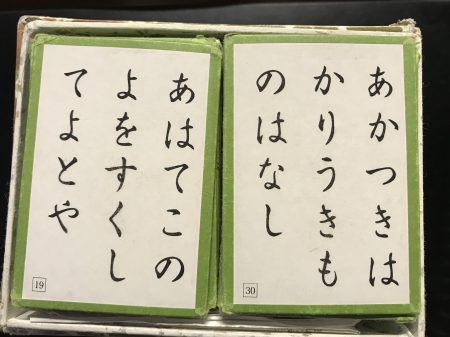 あかつきは
かりうきも
のはなし
30
あはてこの
よをすくし
てよとや
19